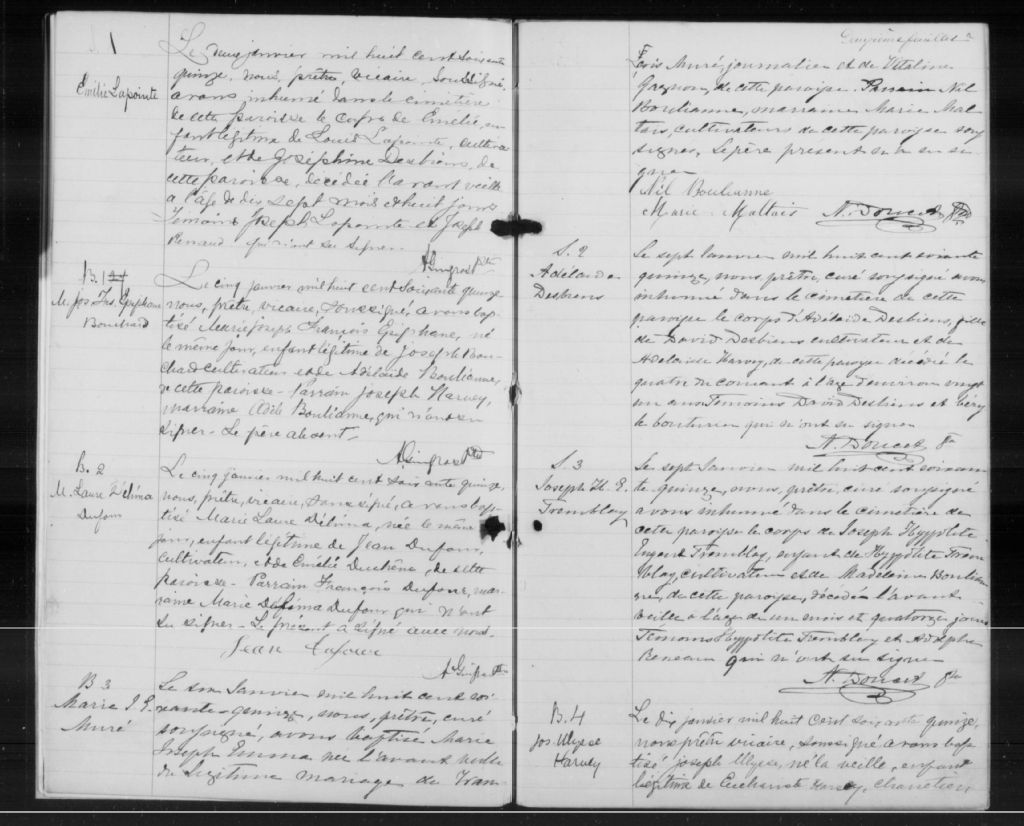 S. 1
Emélie Lapointe
Le deux janvier mil huit cent soixante
quinze, nous, prêtre, vicaire, soussigné,
avons inhumé dans le cimetière
de cette paroisse le corps de Emélie, en
fant légitime de Louis Lapointe, cultiva
teur, et de Joséphine Desbiens, de
cette paroisse, décédée l'avant veille
a l'âge de dix sept mois et huit jours
Temoins Joseph Lapointe et Joseph
Renaud qui n'ont su signer.
A Gingras Ptre
B. 1
M. Jos Frs. Epiphane
Bouchard
Le cinq janvier mil huit cent soixante quinze
nous, prêtre, vicaire, soussigné, avons bap
tisé Marie Joseph François Epiphane, né
le même jour, enfant légitime de Joseph Bou
chard cultivateur et de Adélaide Boulianne,
de cette paroisse - Parrain Joseph Harvey,
marraine Boulianne, qui n'ont su
signer - Le père absent -
A Gingras Ptre
B. 2
M. Laure Délima
Dufour
Le cinq janvier mil huit cent soixante quinze,
nous, prêtre, vicaire, soussigné, avons bap
tisé Marie Laure Délima, née le même
jour, enfant légitime de Jean Dufour,
cultivateur, et de Emélie Duchêne, de cette
paroisse - Parrain François Dufour, mar
raine Marie Délima Dufour qui n'ont
su signer - Le présent a signé avec nous.
Jean
A Gingras Ptre
B 3
Marie J. E.
Muré
Le six Janvier mil huit cent soi
xante-quinze, nous, prêtre, curé
soussigné, avons baptisé Marie
Joseph Emma née l'avant veille
du légitime mariage de Fran
Deuxième feuillet
çois Muré journalier et de
Gagnon, de cette paroisse. Parrain Nil
Boulianne, marraine Marie Mal
tais, cultivateurs de cette paroisse sous
signés, le père present n'a su si
gner
Nil Boulianne
Marie Maltais A. Doucet Ptre
S. 2
Adélaide
Desbiens
Le sept Janvier mil huit cent soixante
quinze, nous, prêtre, curé soussigné avons
inhumé dans le cimetière de cette
paroisse le corps d'Adélaide Desbiens, fille
de David Desbiens cultivateur et de
Adelaide Harvey, de cette paroisse décédée le
quatre du courant à l'age d'environ vingt
un ans Temoins David Desbiens et
qui n'ont su signer
A. Doucet Ptre
S. 3
Joseph H. E.
Tremblay
Le sept Janvier mil huit cent soixan
te quinze, nous, prêtre, curé soussigné
avons inhumé dans le cimetière de
cette paroisse le corps de Joseph Hyppolite
Eugène Tremblay, enfant de Hyppolite Trem
blay, cultivateur et de Madeleine Boulian
ne, de cette paroisse, décédé l'avant
veille à l'age de un mois et quatorze jours
Témoins Hyppolite Tremblay et Adolphe
qui n'ont su signer
A. Doucet Ptre
B. 4
Jos Ulysse
Harvey
Le dix janvier mil huit cent soixante quinze,
nous prêtre vicaire, soussigné avons bap
tisé Joseph Ulysse, né la veille, enfant
légitime de Euchariste Harvey, charretier